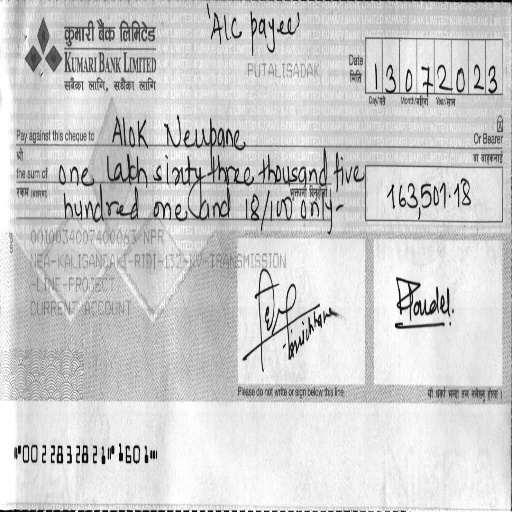 कुमारी बैंक लिमिटेड
KUMARI BANK LIMITED
सबैका लागि, सधैंका लागि
'A/C payee'
PUTALISADAK
Date
मिति
13072023
Day/गते Month/महिना Year/साल
Pay against this cheque to Alok Neupane
Or Bearer
श्री
वा वाहकलाई
the sum of one lakh sixty three thousand five
रकम
hundred one and 18/100 only-
163,501.18
0010034007400063 NPR
NEA-KALIGANDAKI-RIDI-132-KV-TRANSMISSION
-LINE-PROJECT
CURRENT ACCOUNT
Poudel.
Please do not write or sign below this line.
⑈00228328 21⑈ 1601⑈